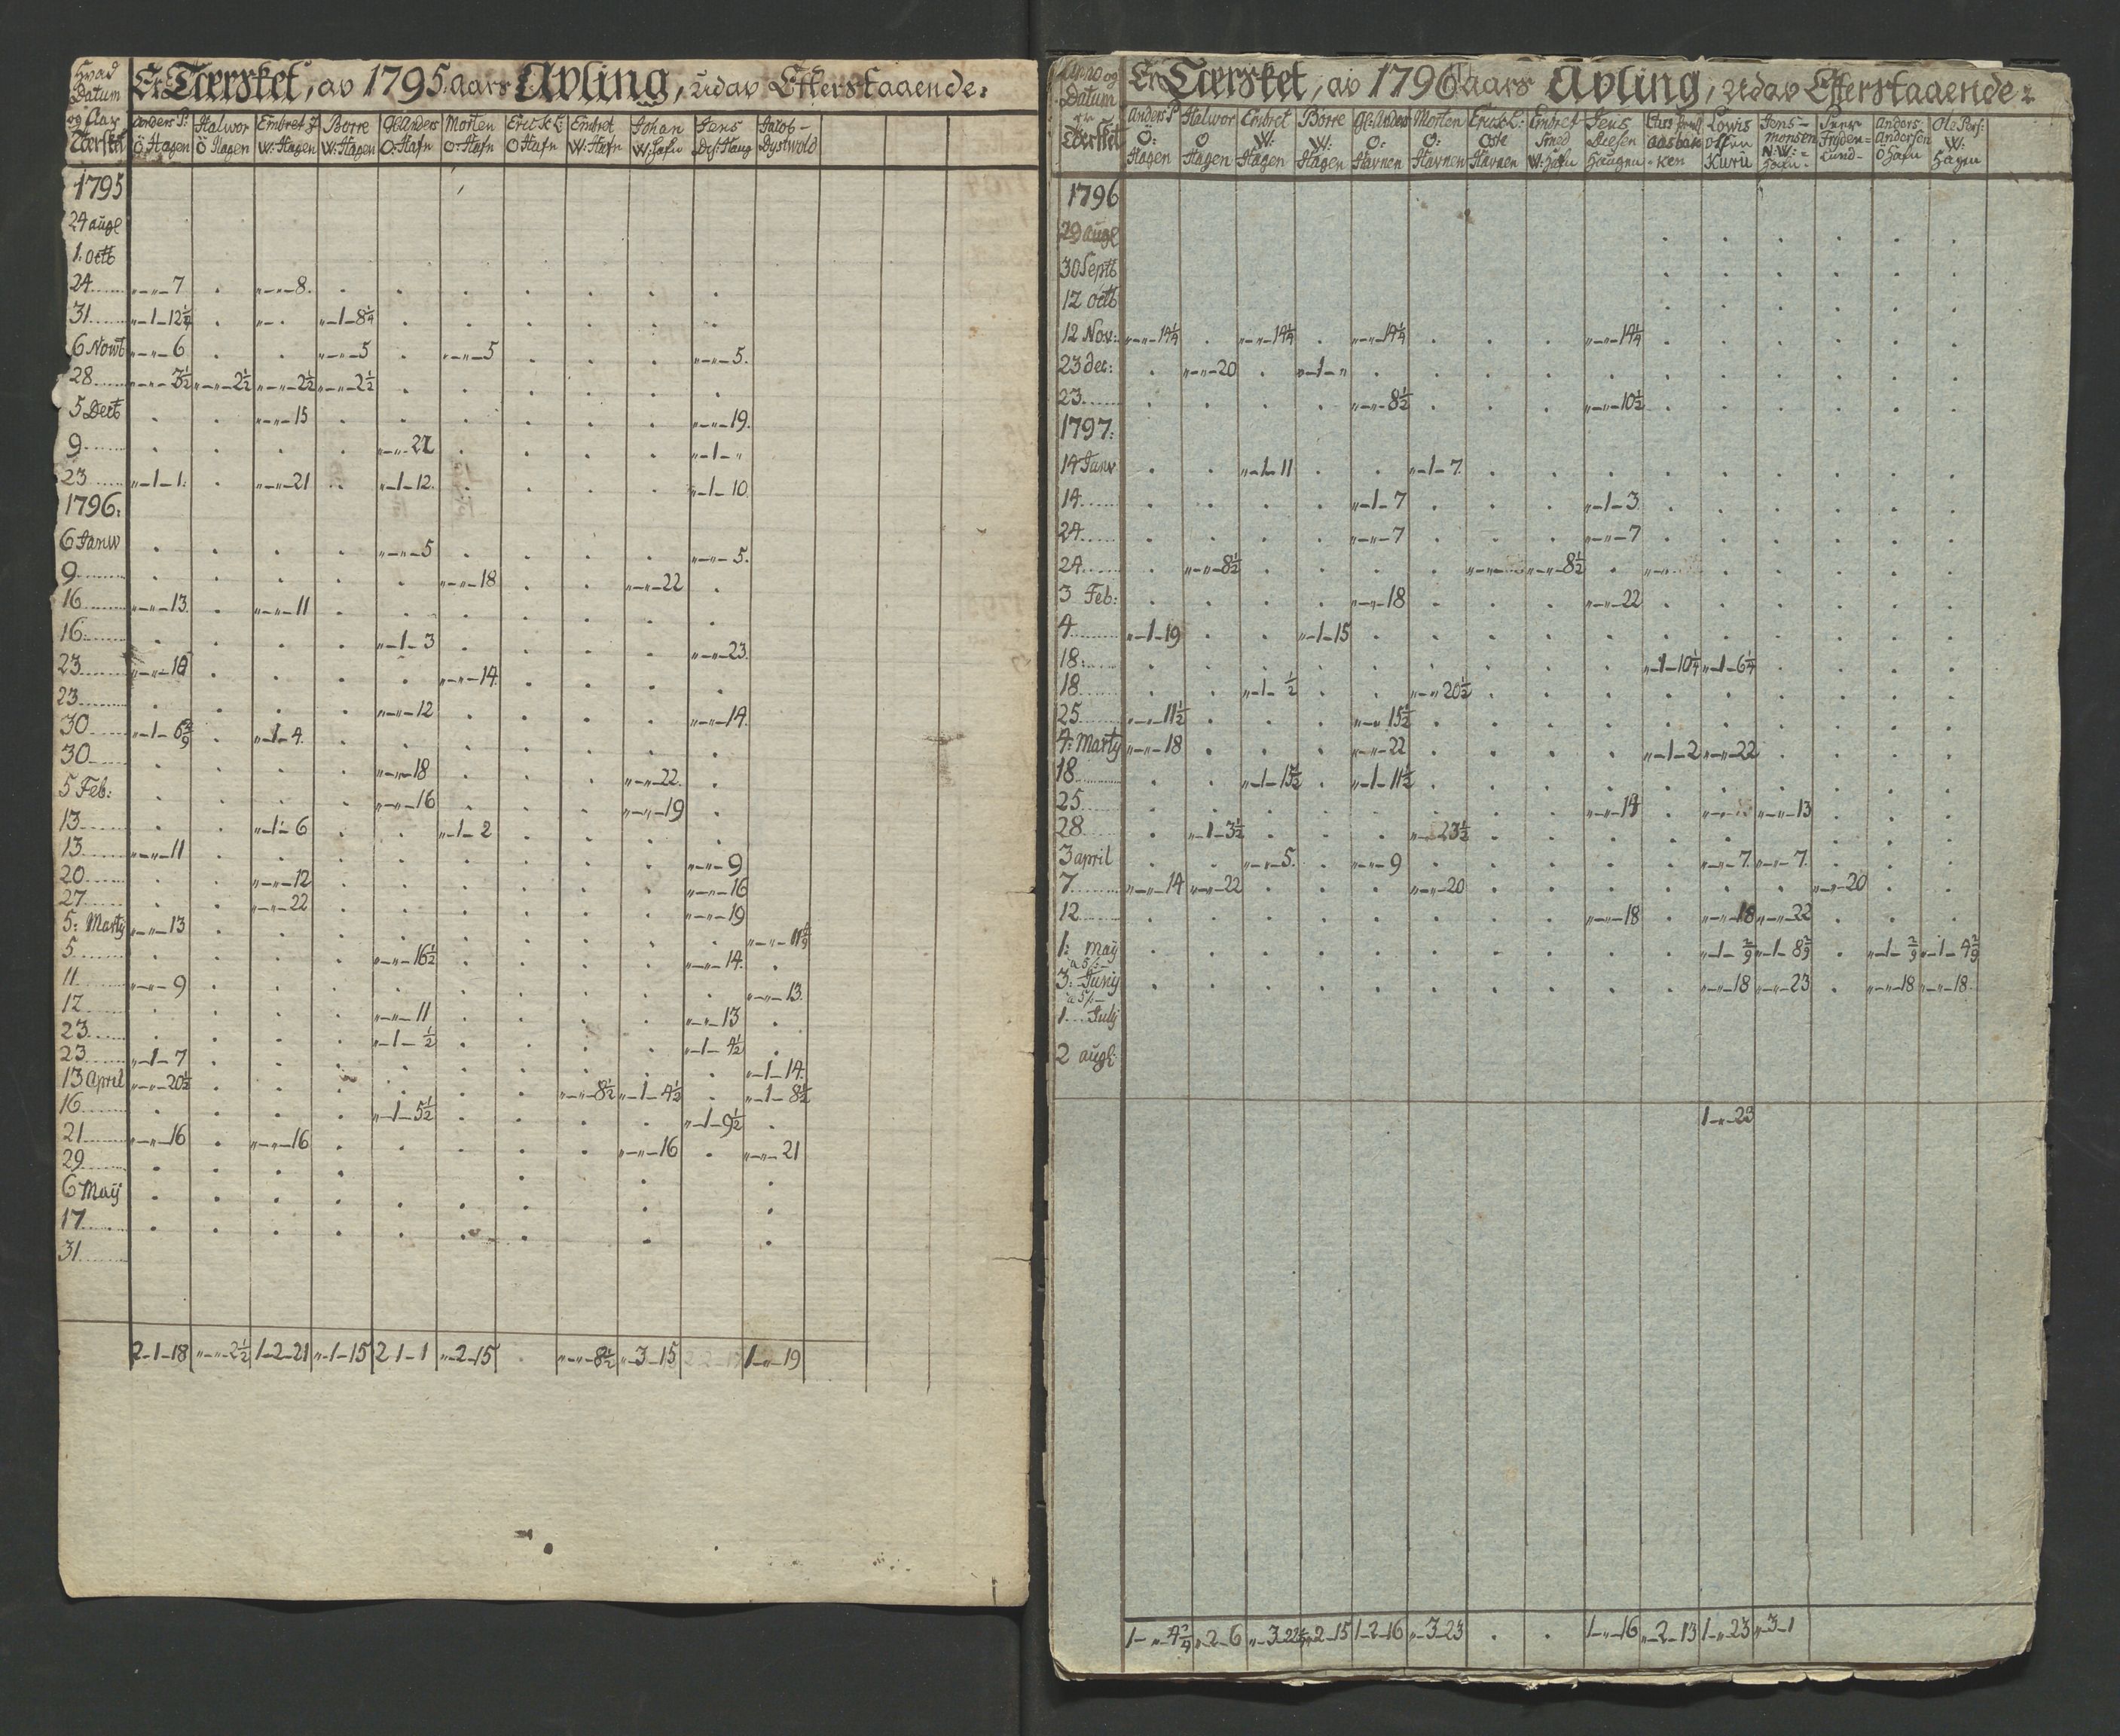 Hvad Datum og Aar Tærsket
Er Tærsket, av 1795 aars Avling, udav Efterstaaende:
Anders P: Ö Hagen | Halwor Ö Hagen | Embret J W: Hagen | Borre W: Hagen | Gl: Anders O: Hafn | Morten O: Hafn | Erick E O Hafn | Embret W: Hafn | Johan W: Hafn | Jens Dys: Haug | Jacob Dystwold
1795
24 augl
1. octb
24 „-„-7 . „-„-8. . . . . . . .
31 „-1-12¼ . „-. „-1-8¼ . . . . . .
6 Nowb „-„-6 . . „-„-5 . „-„-5 . . . „-„-5.
28 „-„-3½ „-„-2½ „-„-2½ „-„-2½ . . . . . .
5 Decb . . „-„-15 . . . . . . „-„-19.
9 . . . . „-„-22 . . . . „-1-„
23 „-1-1. . „-„-21 . „-1-12. . . . . „-1-10
1796:
6 Janw . . . . „-„-5 . . . . „-„-5.
9 . . . . . „-„-18 . . „-„-22 .
16 „-„-13. . „-„-11 . . . . . . .
16 . . . . „-1-3 . . . . „-„-23.
23 „-„-18 . . . . „-„-14. . . . .
23 . . . . „-„-12 . . . . „-„-14.
30 „-1-6 2/9 . „-1-4. . . . . . . .
30 . . . . „-„-18 . . . „-„-22. .
5 Feb: . . . . „-„-16 . . . „-„-19 .
13 . . „-1-6 . . „-1-2 . . . .
13 „-„-11 . . . . . . . . „-„-9
20 . . „-„-12 . . . . . . „-„-16
27 . . „-„-22 . . . . . . „-„-19
5: Martÿ „-„-13 . . . . . . . . . „-„-11 2/9
5 . . . . „-„-16½ . . . . „-„-14. .
11 „-„-9 . . . . . . . . . „-„-13.
12 . . . . „-„-11 . . . . „-„-13 .
23 . . . . „-1-½ . . . . „-1-4½ .
23 „-1-7 . . . . . . . . . „-1-14.
13 April „-„-20½ . . . . . . „-„-8½ „-1-4½ . „-1-8½
16 . . . . „-1-5½ . . . . „-1-9½ .
21 „-„-16 . „-„-16 . . . . . „-„-16 . „-„-21
29 . . . . . . .
6 Maÿ . . . . . . . . .
17 . . . . . . . .
31
2-1-18 „-„-2½ 1-2-21 „-1-15 2 1-1 „-2-15 . „-„-8½ „-3-15 1-„-19
Datum Tærsket
Er Tærsket, av 1796 aars Avling, udav Efterstaaende:
Anders P O: Hagen | Halwor O Hagen | Embret W: Hagen | Borre W: Hagen | Gl: Anders O: Havnen | Morten O: Havnen | Erick E: Oste Havnen | Embret Smed W: Hafn | Jens Haugen | Aasbakken | Lowis Olsen Kurû | Jens Monsen N: W: Hafn | Frydenlund | Anders Andersen Ö Hafn | Ole W: Hagen
1796
29 augl
30 Septb
12 octb
12 Nov: „-„-14¼ . „-„-14¼ . „-„-14¼ . . . „-„-14¼ . . . . . .
23 dec: . „-„-20 . „-1-„ . . . . . . . . . . .
23 . . . . „-„-8½ . . . „-„-10½ . . . . . .
1797:
14 Janv . . „-1-11 . . „-1-7. . . . . . . . . .
14 . . . . „-1-7 . . . „-1-3. . . . . . .
24 . . . . „-„-7 . . . „-„-7 . . . . . .
24 . „-„-8½ . . . . „-„- „-„-8½ . „-„- . . . . .
3 Feb: . . . . „-„-18 . . . „-„-22 . . . . . .
4 „-1-19 . . „-1-15 . . . . . . . . . . .
18: . . . . . . . . . „-1-10¼ „-1-6¼ . . . .
18 . . „-1-½ . . „-„-20½ . . . . . . . . .
25 „-„-11½ . . . „-„-15½ . . . . . . . . . .
4: Martÿ „-„-18 . . . „-„-22 . . . . „-1-2 „-„-22 . . . .
18 . . „-1-15½ . „-1-11½ . . . . . . . . . .
25 . . . . . . . . „-„-14 . „-„- „-„-13 . . .
28 . „-1-3½ . . . „-„-23½ . . . . . . . . .
3 april . . „-„-5. . „-„-9 . . . . . „-„-7. „-„-7. . . .
7 „-„-14 „-„-22 . . . „-„-20 . . . . . . „-„-20 . .
12 . . . . . . . . „-„-18 . „-„-18 „-„-22 . . .
1: maÿ . . . . . . . . . . „-1-2/9 „-1-8 2/9 . „-1-2/9 „-1-4 2/9
a 5/:-
3: Junÿ . . . . . . . . . . „-„-18 „-„-23 . „-„-18 „-„-18
a 5/:-
1 Julÿ
2 augl:
1-„-23
1-„-4 2/9 „-2-6 „-3-22½ „-2-15 1-2-16 „-3-23 . . 1-„-16 „-2-13 1-„-23 „-3-1